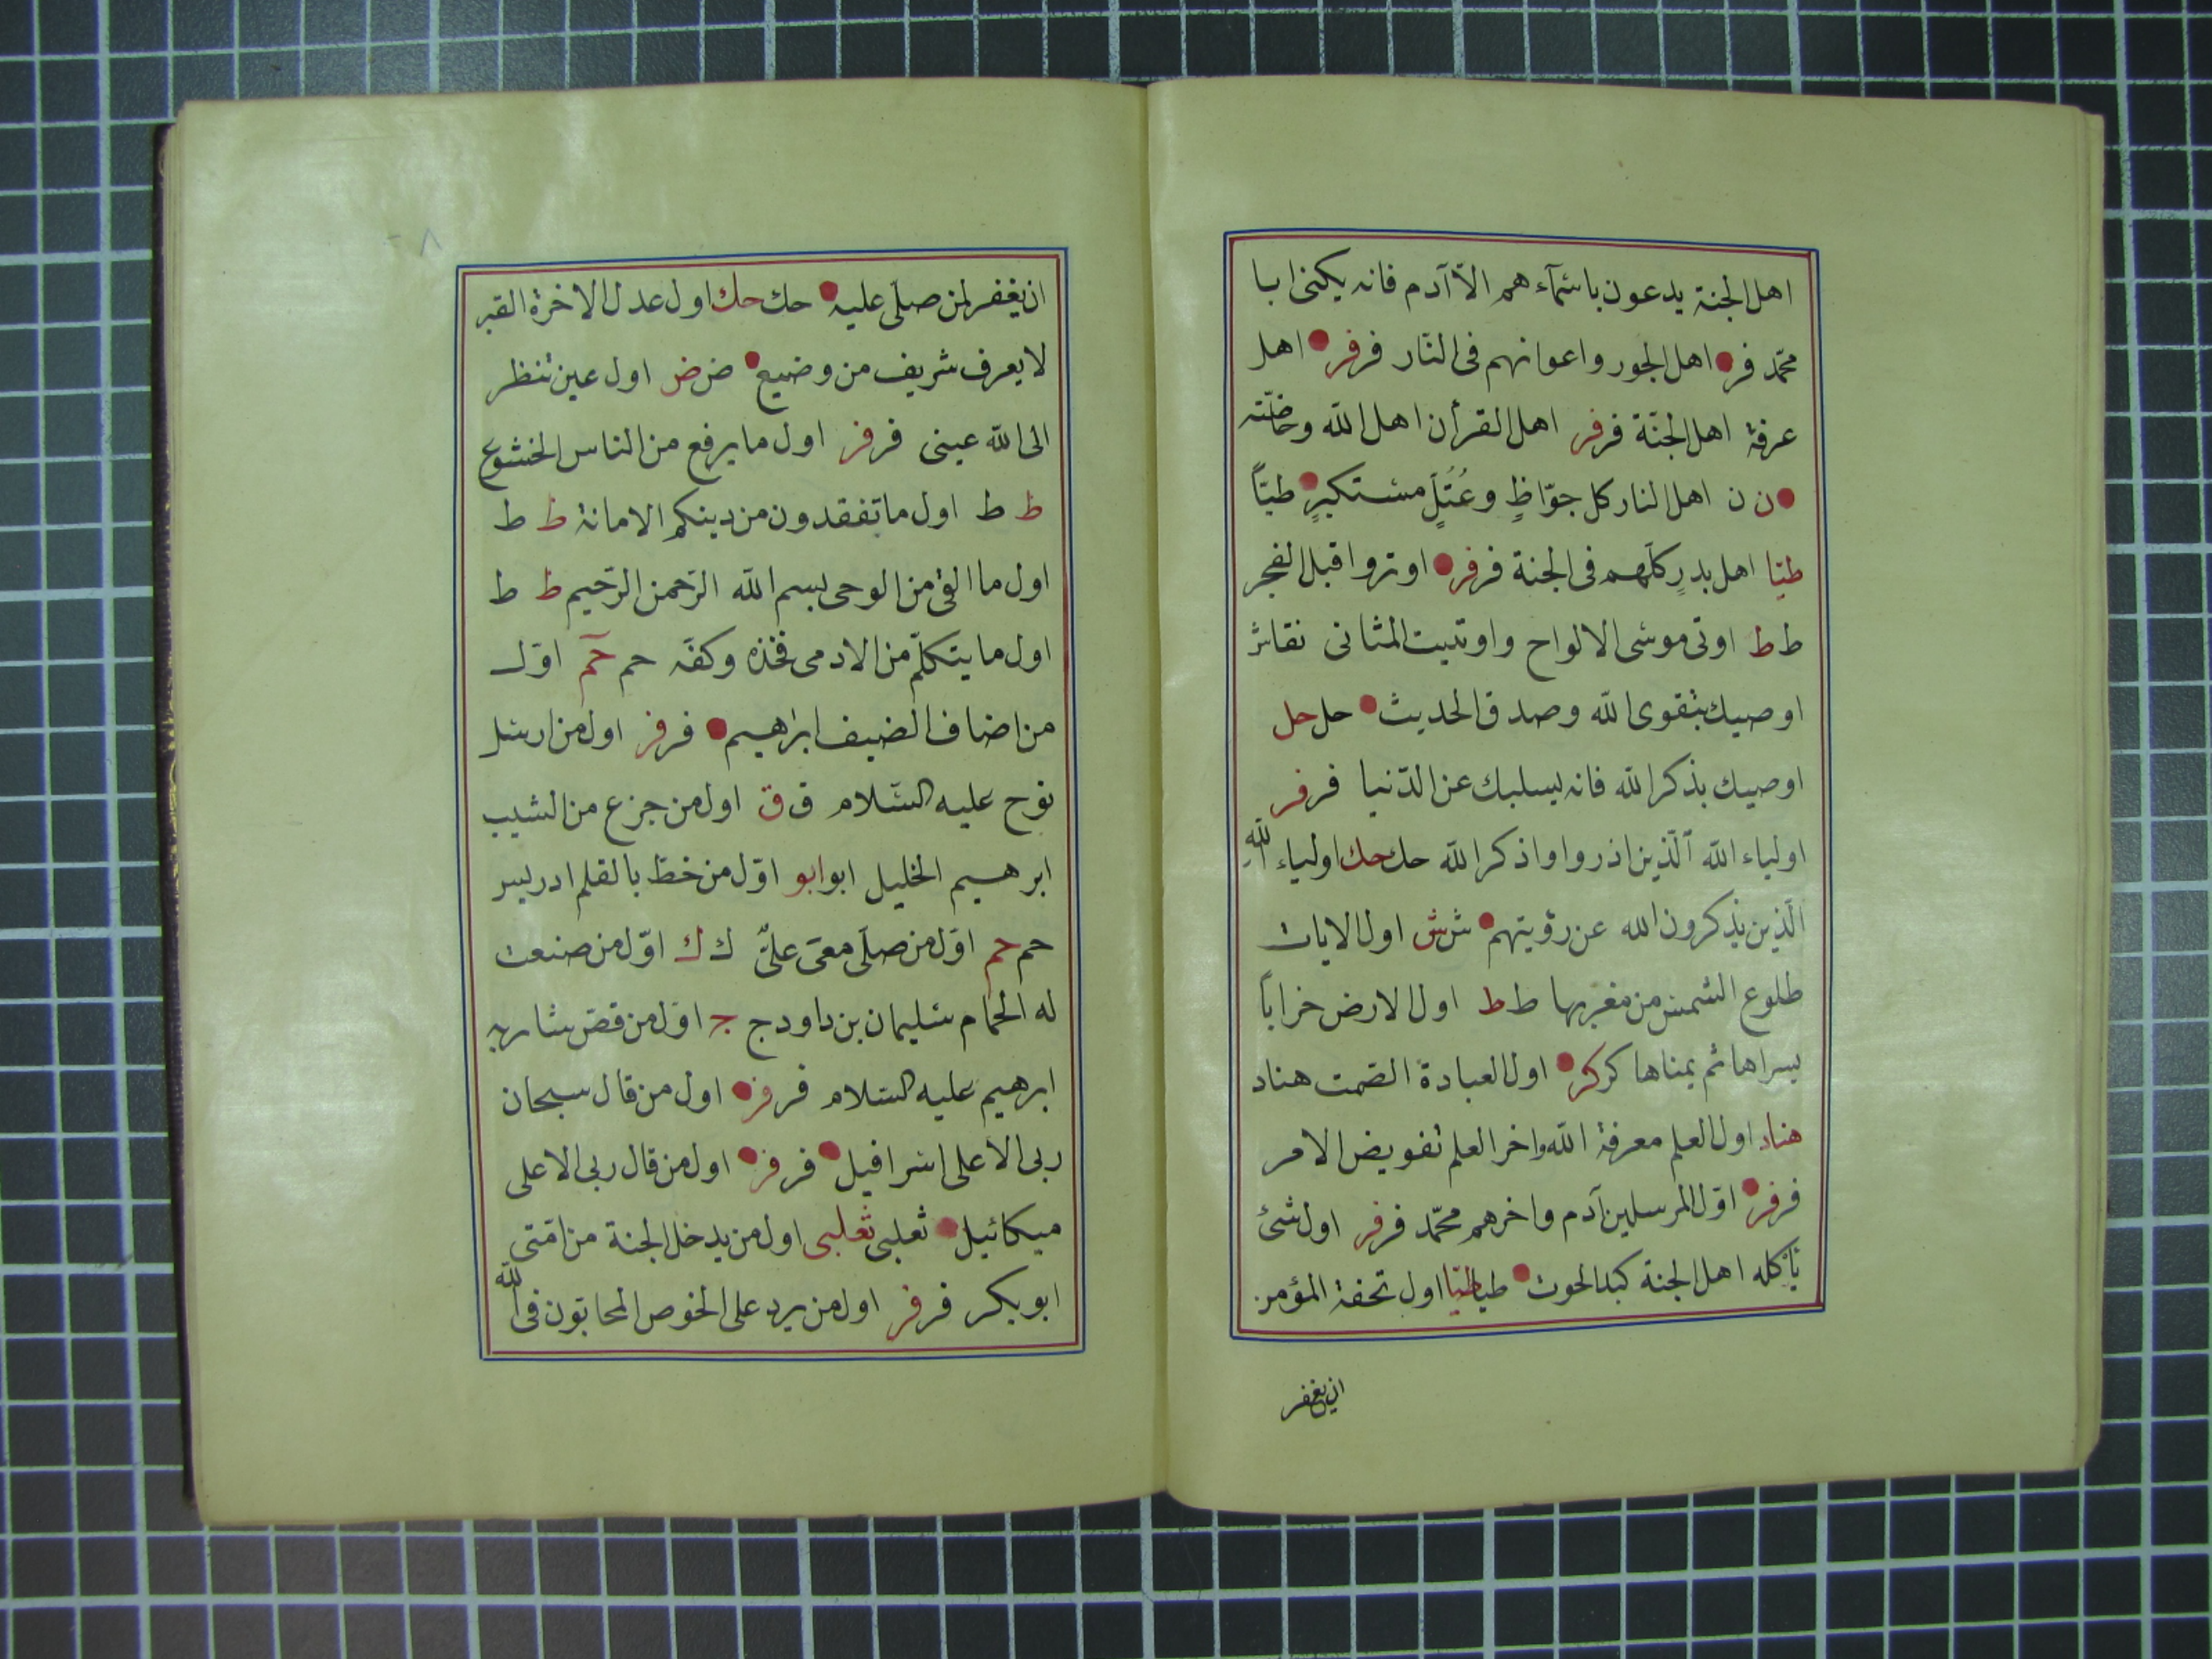 اهل الجنة يدعون باسمآء هم الّا آدم فانه يكنى ابا
محمّد فر اهل الجور واعوانهم فى النّار فر فر اهل
عرفة اهل الجنّة فر فر اهل القرأن اهل الله وخاصّته
ن ن اهل النار كل جوّاظٍ وعُتُلٍّ مستكبرٍ طبّاً
طيّا اهل بدرٍ كلّهم فى الجنة فر فر اوتروا قبل الفجر
ط ط اوتى موسى الالواح واوتيت المثانى نقاش
اوصيك بتقوى الله وصدق الحديث حل حل
اوصيك بذكر الله فانه يسلبك عن الدّنيا فر فر
اولياء الله الّذين اذا رواوا ذكر الله حك حك اولياء الله
الّذين يذكرون الله عن رؤيتهم ش ش اول الايات
طلوع الشمس من مغربها ط ط اول الارض خراباً
يسراها ثم يمناها كر كر اول العبادة الصّمت هناد
هناد اول العلم معرفة الله واخر العلم تفويض الامر
فر فر اوّل المرسلين آدم واخرهم محمّد فر فر اول شئ
يأكله اهل الجنة كبد الحوت طيا طيّا اول تحفة المؤمن
ان يغفر
ان يغفر لمن صلّى عليه حك حك اول عدل الاخرة القبر
لا يعرف شريف من وضيع ض ض اول عين تنظر
الى الله عينى فر فر اول ما يرفع من الناس الخشوع
ط ط اول ما تفقدون من دينكم الامانة ط ط
اول ما القى من الوحى بسم الله الرّحمن الرّحيم ط ط
اول ما يتكلّم من الادمى فخذه وكفّه حم حم اوّل
من اضاف الضيف ابراهيم فر فر اول من ارسل
نوح عليه السّلام ق ق اول من جزع من الشيب
ابرهيم الخليل ابو ابو اوّل من خطّ بالقلم ادريس
حم حم اوّل من صلّى معى علىّ ك ك اوّل من صنعت
له الحمّام سليمان بن داود ج ج اوّل من قصّ شاربه
ابرهيم عليه السّلام فر فر اول من قال سبحان
ربى الاعلى اسرافيل فر فر اول من قال ربى الاعلى
ميكائيل ثعلبى ثعلبى اول من يدخل الجنة من امّتى
ابوبكر فر فر اول من يرد على الحوض المحابّون فى الله